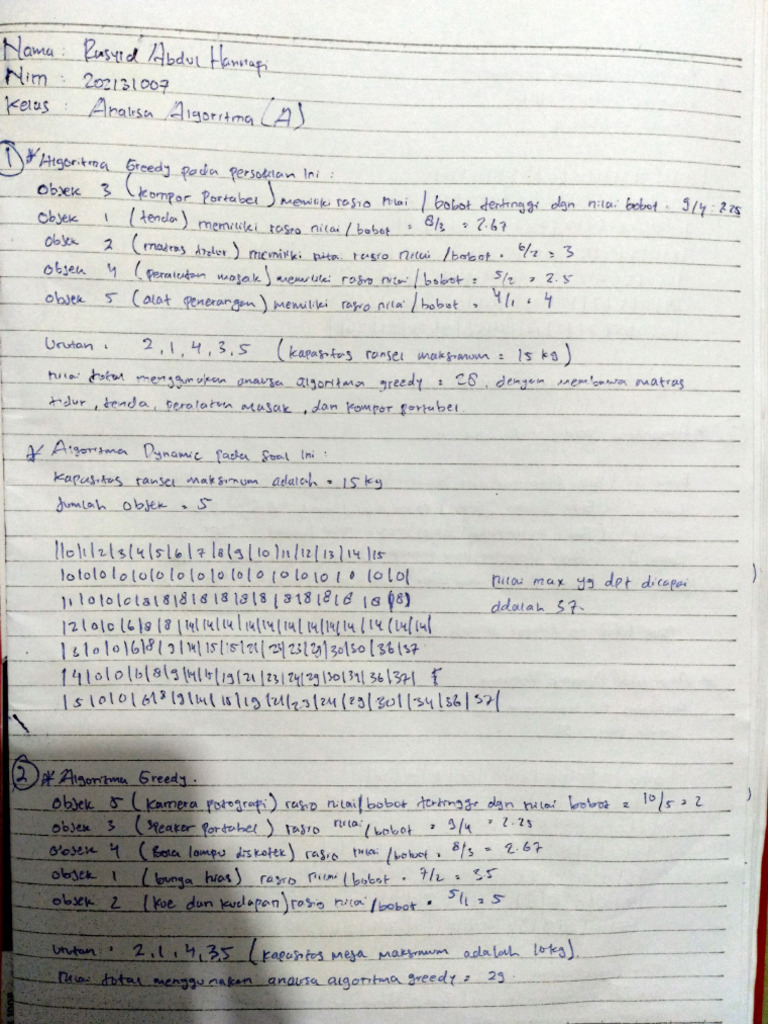 Nama : Rusyid Abdul Hannafi
Nim : 202131007
Kelas : Analisa Algoritma (A)
1 * Algoritma Greedy pada persoalan ini :
Objek 3 (kompor portabel) memiliki rasio nilai / bobot tertinggi dgn nilai bobot = 9/4 = 2.25
Objek 1 (tenda) memiliki rasio nilai/bobot = 8/3 = 2.67
Objek 2 (matras tidur) memiliki rasio nilai/bobot = 6/2 = 3
Objek 4 (peralatan masak) memiliki rasio nilai/bobot = 5/2 = 2.5
Objek 5 (alat penerangan) memiliki rasio nilai/bobot = 4/1 = 4
Urutan : 2, 1, 4, 3, 5 (kapasitas ransel maksimum = 15 kg)
nilai total menggunakan analisa algoritma greedy = 28, dengan membawa matras
tidur, tenda, peralatan masak, dan kompor portabel.
* Algoritma Dynamic pada soal ini :
kapasitas ransel maksimum adalah = 15 kg
Jumlah objek = 5
||0|1|2|3|4|5|6|7|8|9|10|11|12|13|14|15
nilai max yg dpt dicapai
adalah 37.
2 * Algoritma Greedy.
Objek 5 (kamera potografi) rasio nilai/bobot tertinggi dgn nilai bobot = 10/5 = 2
Objek 3 (speaker portabel) rasio nilai/bobot = 9/4 = 2.25
Objek 4 (Bola lampu diskotek) rasio nilai/bobot = 8/3 = 2.67
Objek 1 (bunga hias) rasio nilai/bobot = 7/2 = 35
Objek 2 (kue dan kudapan) rasio nilai/bobot = 5/1 = 5
Urutan : 2, 1, 4, 3,5 (kapasitas meja maksimum adalah 10kg).
nilai total menggunakan analisa algoritma greedy = 29.